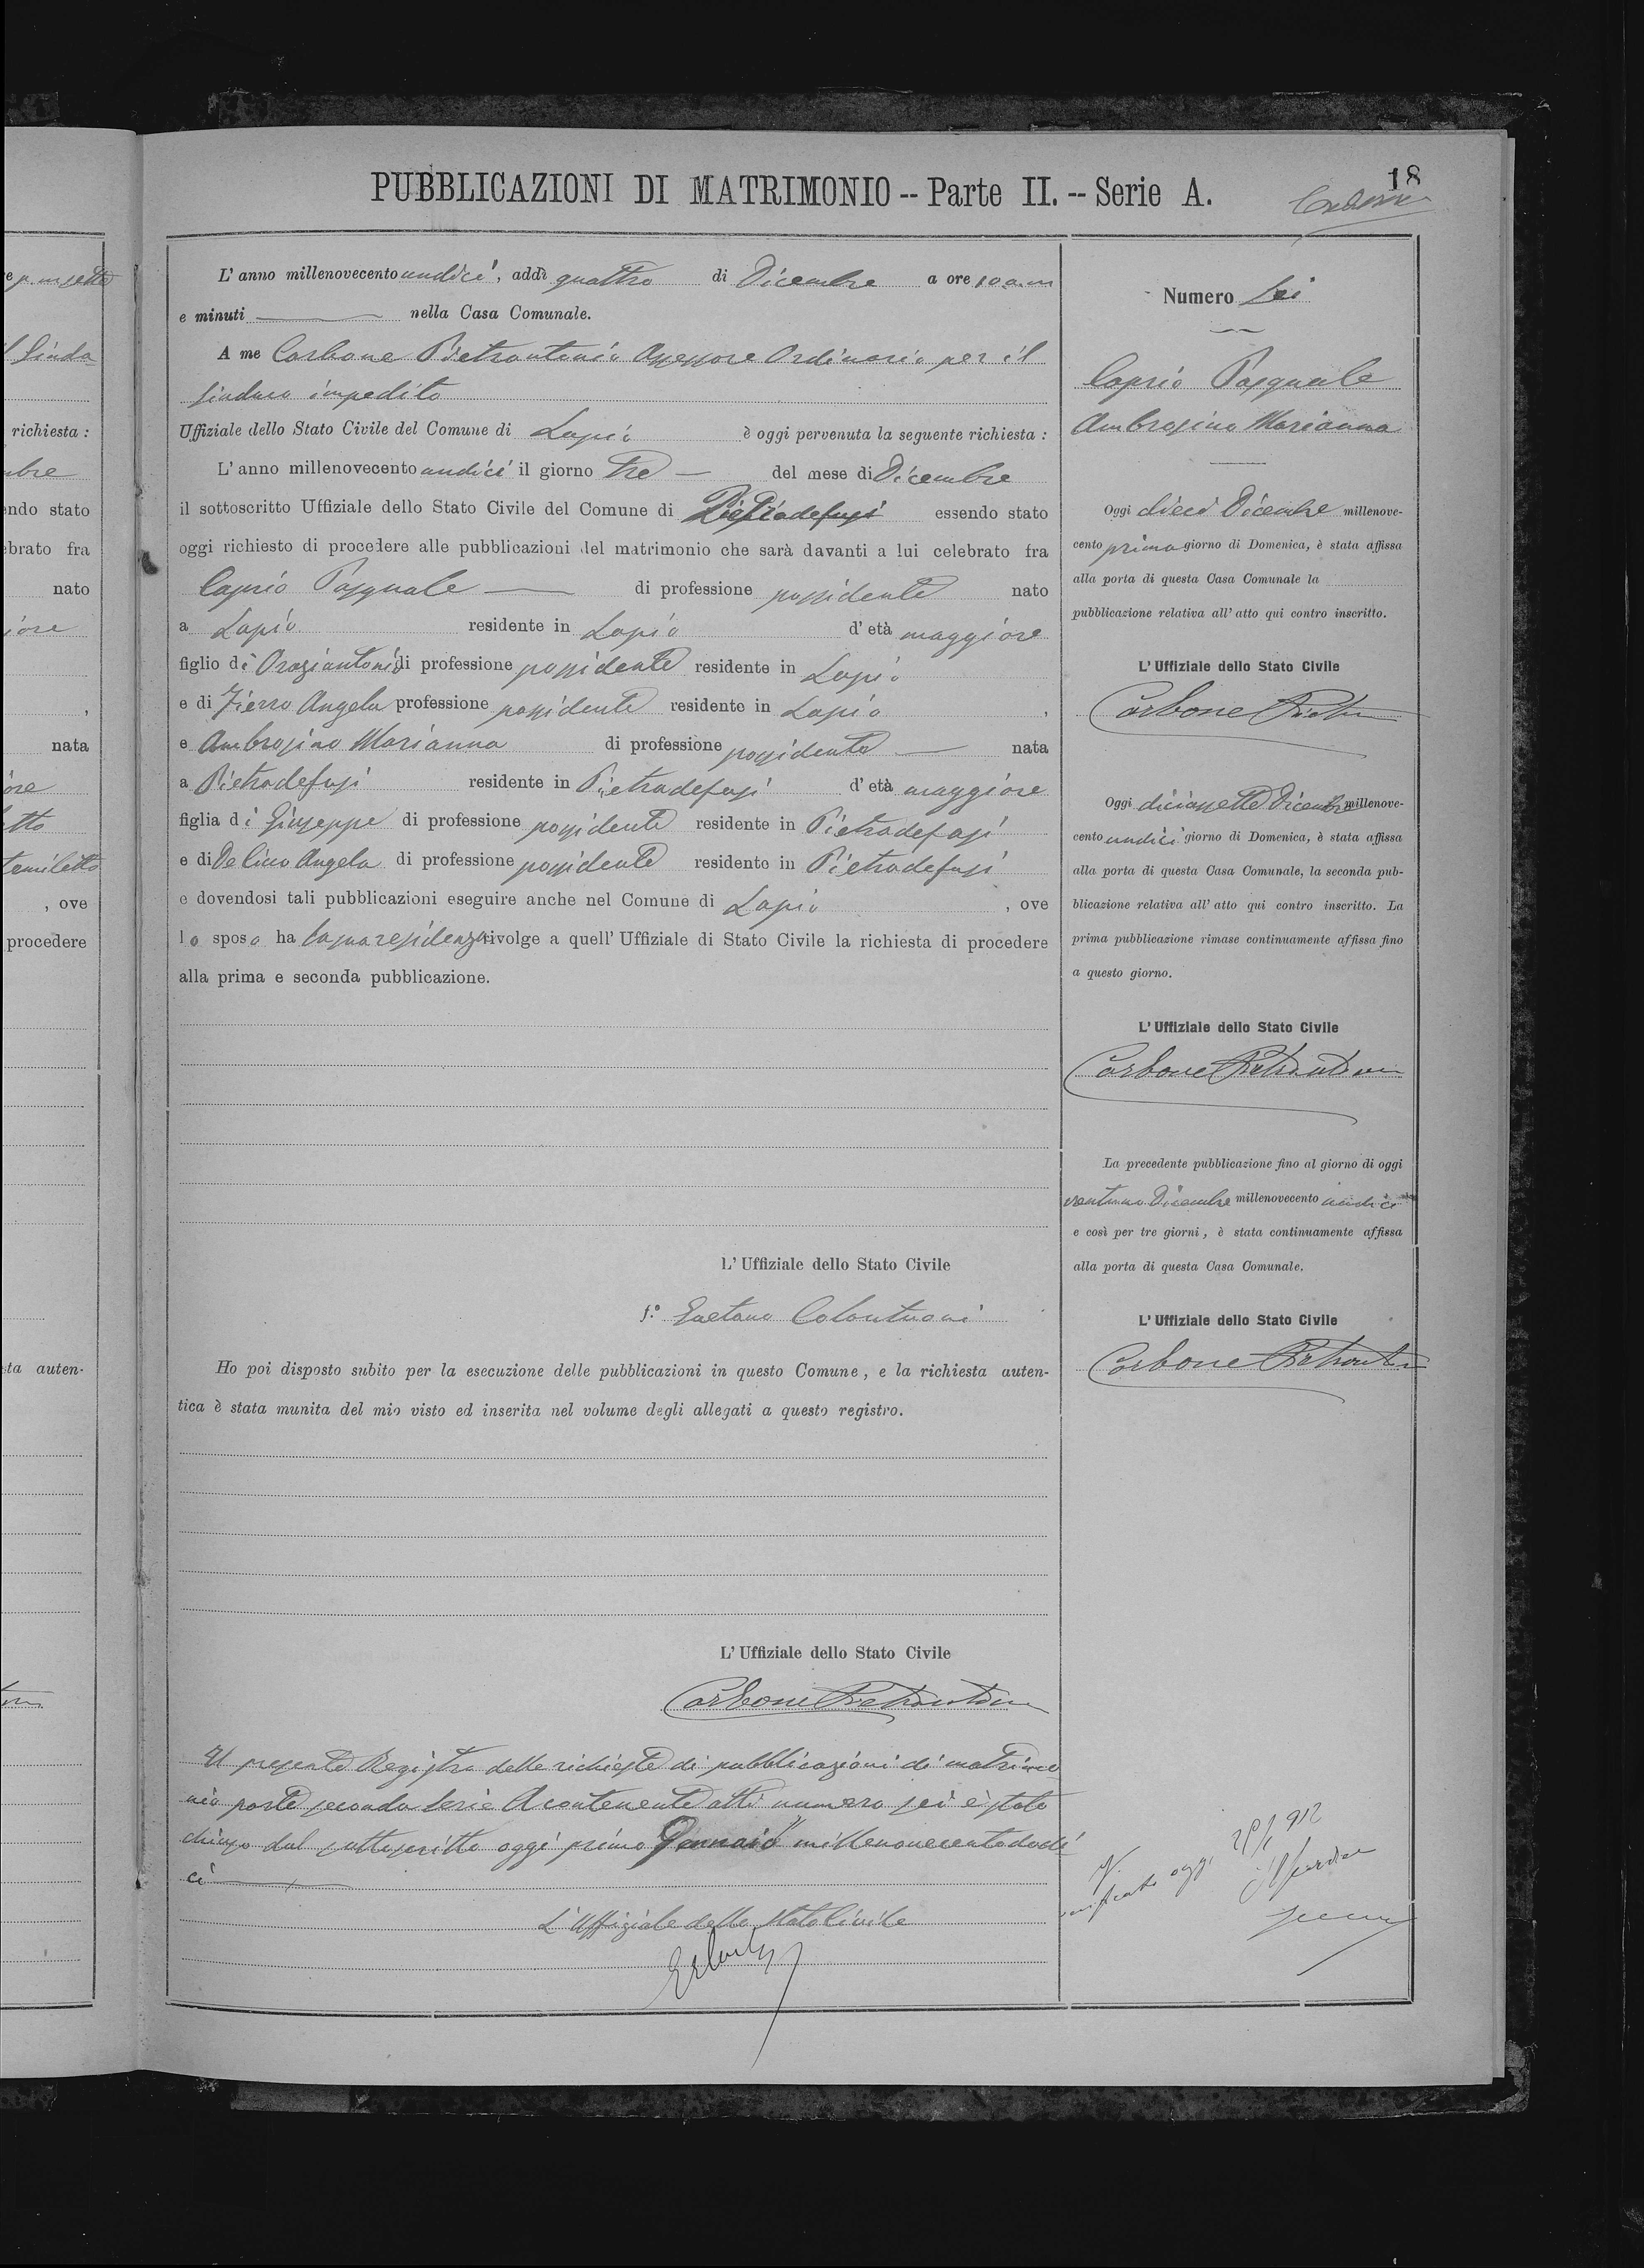 PUBBLICAZIONI DI MATRIMONIO -- Parte II. -- Serie A.
18
L'anno millenovecento undici, addì quattro di Dicembre a ore 10 a.m
e minuti nella Casa Comunale.
A me Carbone Pietrantonio Assessore Ordinario per il
sindaco impedito
Uffiziale dello Stato Civile del Comune di Lapio è oggi pervenuta la seguente richiesta :
L'anno millenovecento undici il giorno tre del mese di Dicembre
il sottoscritto Uffiziale dello Stato Civile del Comune di Pietradefusi essendo stato
oggi richiesto di procedere alle pubblicazioni del matrimonio che sarà davanti a lui celebrato fra
Caprio Pasquale di professione possidente nato
a Lapio residente in Lapio d'età maggiore
figlio di Oraziantonio di professione possidente residente in Lapio
e di Fierro Angela professione possidente residente in Lapio ,
e Ambrosino Marianna di professione possidente nata
a Pietradefusi residente in Pietradefusi d'età maggiore
figlia di Giuseppe di professione possidente residente in Pietradefusi
e di De Cicco Angela di professione possidente residente in Pietradefusi
e dovendosi tali pubblicazioni eseguire anche nel Comune di Lapio , ove
lo sposo ha la sua residenza rivolge a quell'Uffiziale di Stato Civile la richiesta di procedere
alla prima e seconda pubblicazione.
L'Uffiziale dello Stato Civile
f.º Gaetano Colantuoni
Ho poi disposto subito per la esecuzione delle pubblicazioni in questo Comune, e la richiesta auten-
tica è stata munita del mio visto ed inserita nel volume degli allegati a questo registro.
L'Uffiziale dello Stato Civile
Carbone Pietrantonio
Il presente Registro delle richieste di pubblicazioni di matrimo
nio parte seconda serie A contenente atti numero sei è stato
chiuso dal sottoscritto oggi primo Gennaio millenovecentododi
ci
L'Uffiziale dello Stato Civile
Numero Sei
Caprio Pasquale
Ambrosino Marianna
Oggi dieci Dicembre millenove-
cento primo giorno di Domenica, è stata affissa
alla porta di questa Casa Comunale la
pubblicazione relativa all'atto qui contro inscritto.
L'Uffiziale dello Stato Civile
Carbone Pietran
Oggi diciassette Dicembre millenove-
cento undici giorno di Domenica, è stata affissa
alla porta di questa Casa Comunale, la seconda pub-
blicazione relativa all'atto qui contro inscritto. La
prima pubblicazione rimase continuamente affissa fino
a questo giorno.
L'Uffiziale dello Stato Civile
Carbone Pietrantonio
La precedente pubblicazione fino al giorno di oggi
ventuno Dicembre millenovecento undici
e così per tre giorni, è stata continuamente affissa
alla porta di questa Casa Comunale.
L'Uffiziale dello Stato Civile
Carbone Pietranton
V.
verificato oggi
p. m. sette
Sinda-
richiesta :
mbre
endo stato
ebrato fra
nato
iore
,
nata
ore
tto
temiletto
, ove
procedere
sta auten-